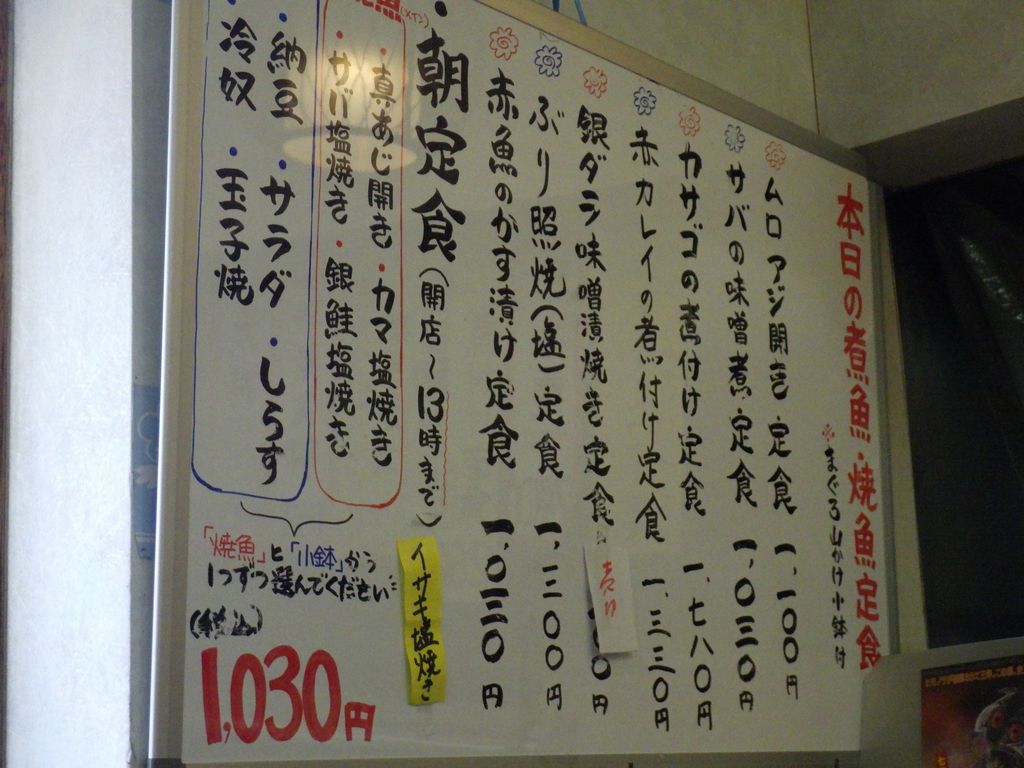 本日の煮魚・焼魚定食
※まぐろ山かけ小鉢付
ムロアジ開き定食 一、一〇〇円
サバの味噌煮定食 一、〇三〇円
カサゴの煮付け定食 一、七八〇円
赤カレイの煮付け定食 一、三三〇円
銀ダラ味噌漬焼き定食 〇〇円
売切
ぶり照焼(塩)定食 一、二〇〇円
赤魚のかす漬け定食 一、〇三〇円
・朝定食(開店〜13時まで)
イサキ塩焼き
(メイン)
・真あじ開き・カマ塩焼き
・サバ塩焼き・銀鮭塩焼き
・納豆・サラダ・しらす
・冷奴・玉子焼
「焼魚」と「小鉢」から
1つずつ選んでください
(税込)
1,030円